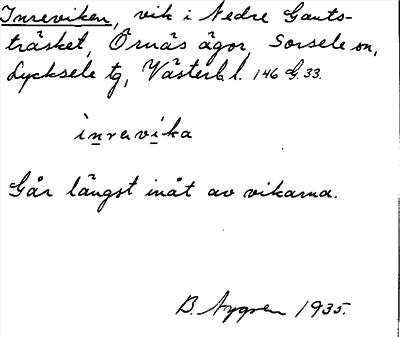 Inreviken, vik i Nedre Gauts-
träsket, Örnäs ägor, Sorsele sn,
Lycksele tg, Västerb l. 146 G. 33.
inrevika
Går längst inåt av vikarna.
B. 1935.